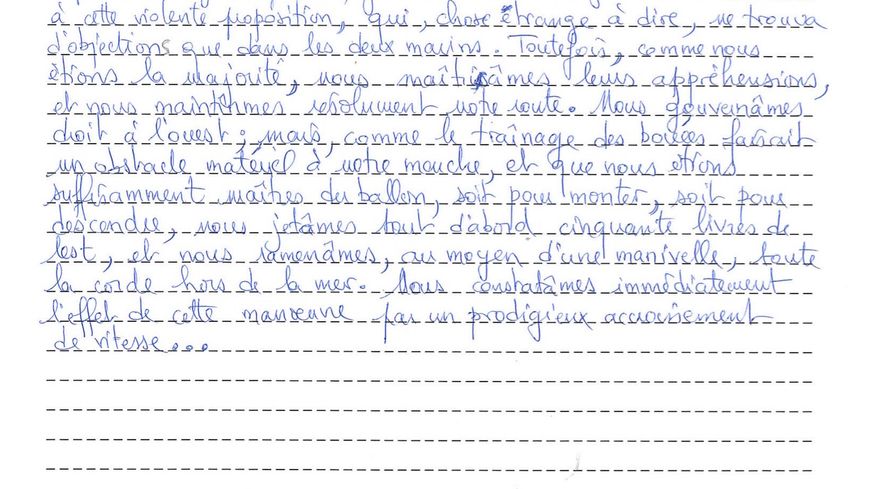 à cette violente proposition, qui, chose étrange à dire, ne trouva
d'objections que dans les deux marins. Toutefois, comme nous
étions la majorité, nous maîtrisâmes leurs appréhensions,
et nous maintînmes résolument notre route. Nous gouvernâmes
droit à l'ouest ; mais, comme le traînage des bouées faisait
un obstacle matériel à notre marche, et que nous étions
suffisamment maîtres du ballon, soit pour monter, soit pour
descendre, nous jetâmes tout d'abord cinquante livres de
lest, et nous ramenâmes, au moyen d'une manivelle, toute
la corde hors de la mer. Nous constatâmes immédiatement
l'effet de cette manœuvre par un prodigieux accroissement
de vitesse...